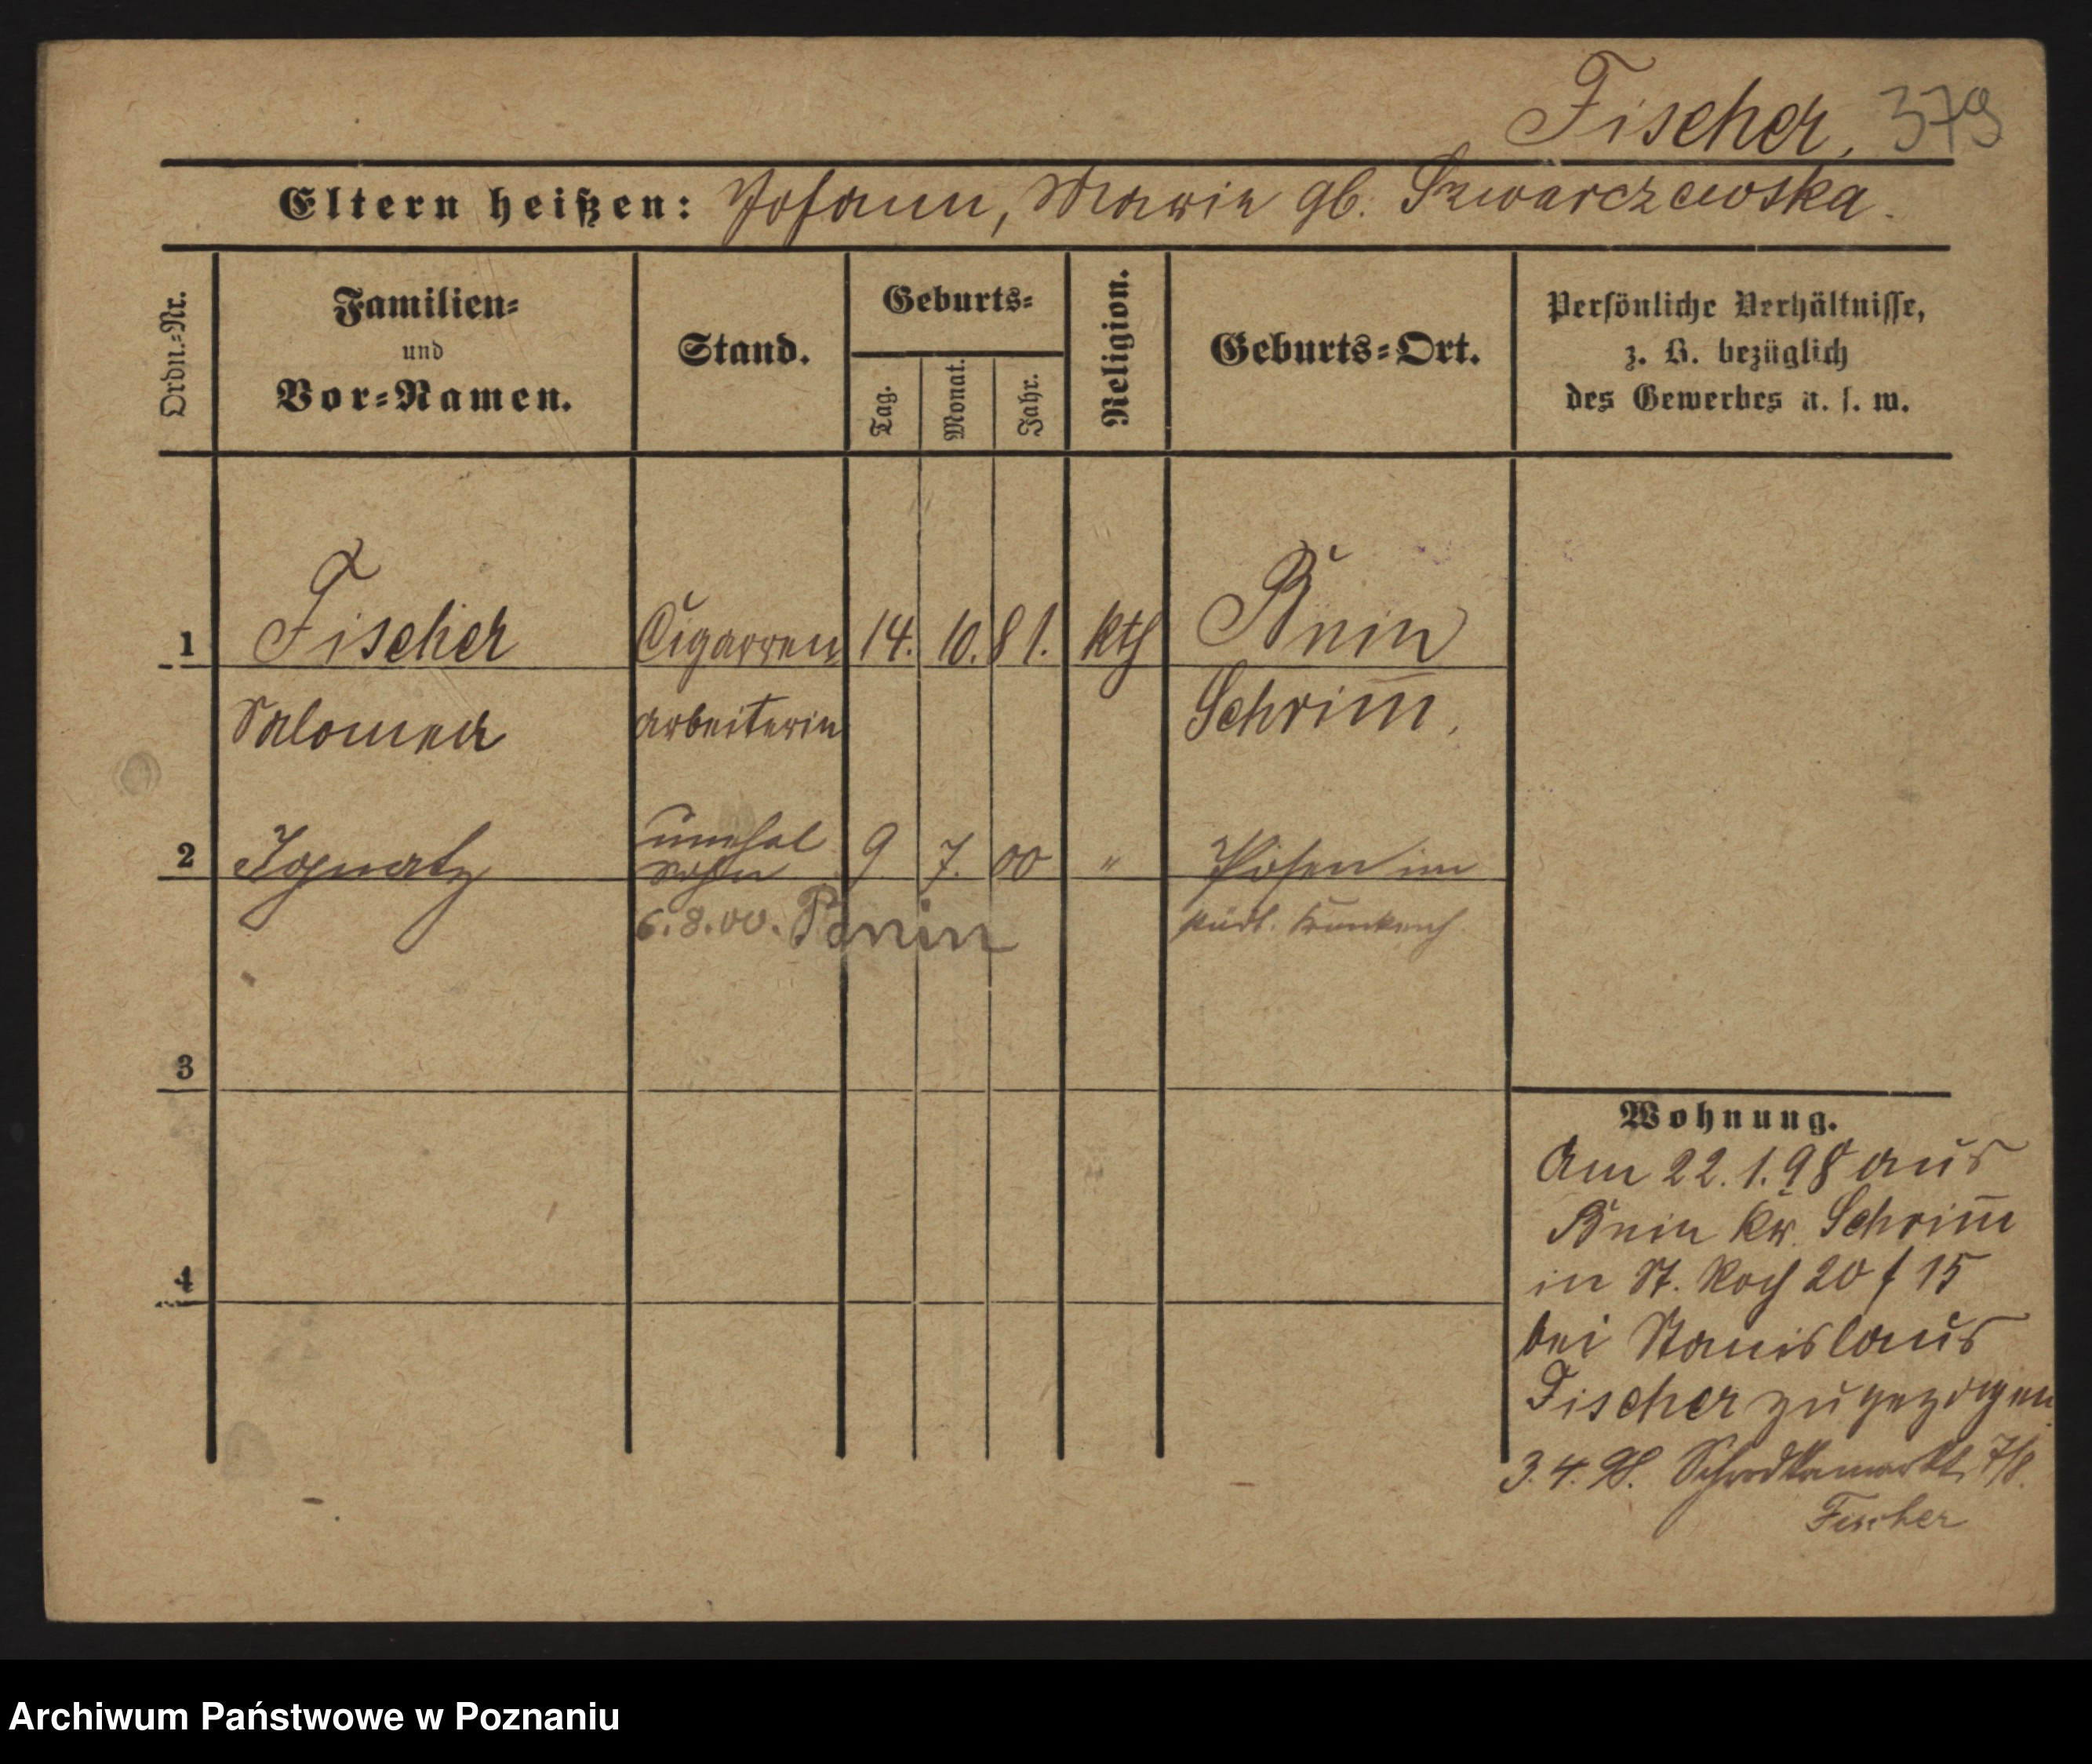 Fischer, 379
Eltern heißen: Johann, Marie gb. Szwarczewska.
Ordn.=Nr.
Familien=
und
Vor=Namen.
Stand.
Geburts=
Tag.
Monat.
Jahr.
Religion.
Geburts=Ort.
Persönliche Verhältnisse,
z. B. bezüglich
des Gewerbes u. s. w.
1 Fischer Cigarren 14. 10. 81. kth Bnin
Salomea arbeiterin Schrim̅.
2 Ignatz unehel 9 7. 00 " Posen im
Sohn
6.8.00. städt. Krankenh
3
4
Wohnung.
Am 22.1.98 aus
Bnin Kr. Schrim̅
in St. Roch 20 f 15
bei Stanislaus
Fischer zugezogen
3.4.98. Schrodkamarkt 7/8.
Fischer
Archiwum Państwowe w Poznaniu